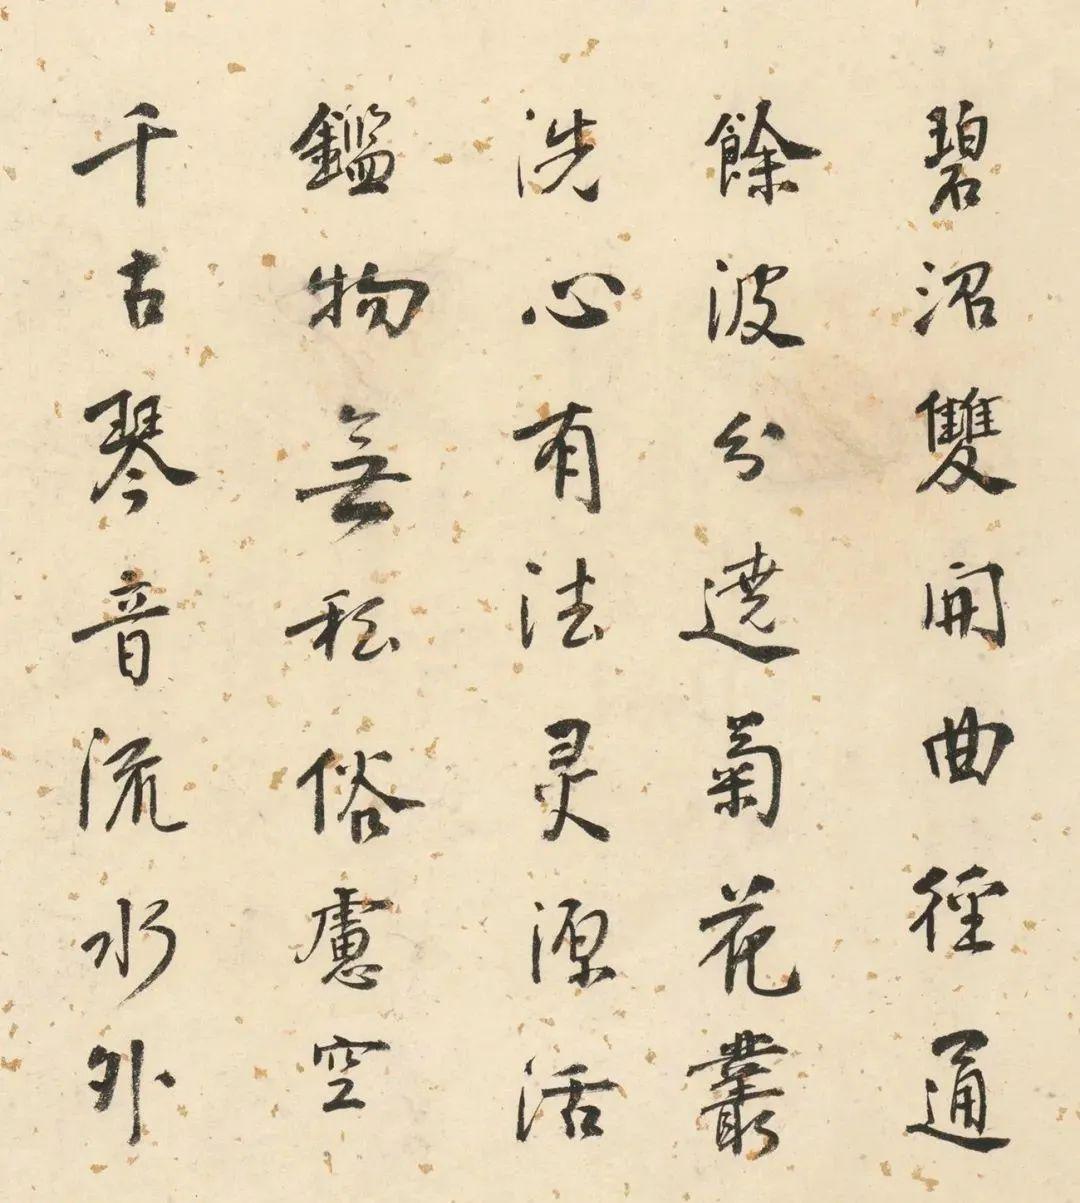 碧沼雙開曲徑通
餘波分遶菊花叢
洗心有法灵源活
鑑物無私俗慮空
千古琴音流水外